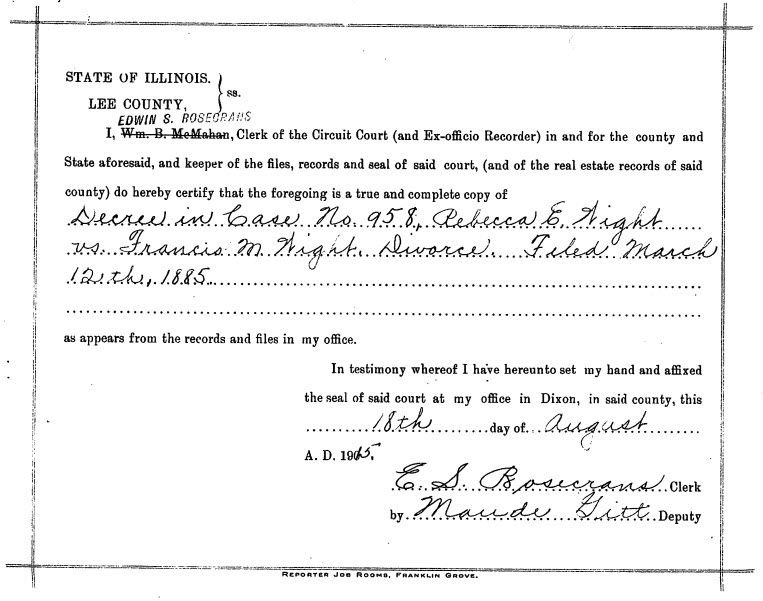 STATE OF ILLINOIS. } ss.
LEE COUNTY,
EDWIN S. ROSECRANS
I, Wm. B. McMahan, Clerk of the Circuit Court (and Ex-officio Recorder) in and for the county and
State aforesaid, and keeper of the files, records and seal of said court, (and of the real estate records of said
county) do hereby certify that the foregoing is a true and complete copy of
Decree in Case No. 958, Rebecca E. Wight
vs. Francis M. Wight. Divorce. Filed March
12th, 1885.
as appears from the records and files in my office.
In testimony whereof I have hereunto set my hand and affixed
the seal of said court at my office in Dixon, in said county, this
18th day of August
A. D. 1915.
E. S. Rosecrans Clerk
by Maude Gitt Deputy
REPORTER JOB ROOMS, FRANKLIN GROVE.